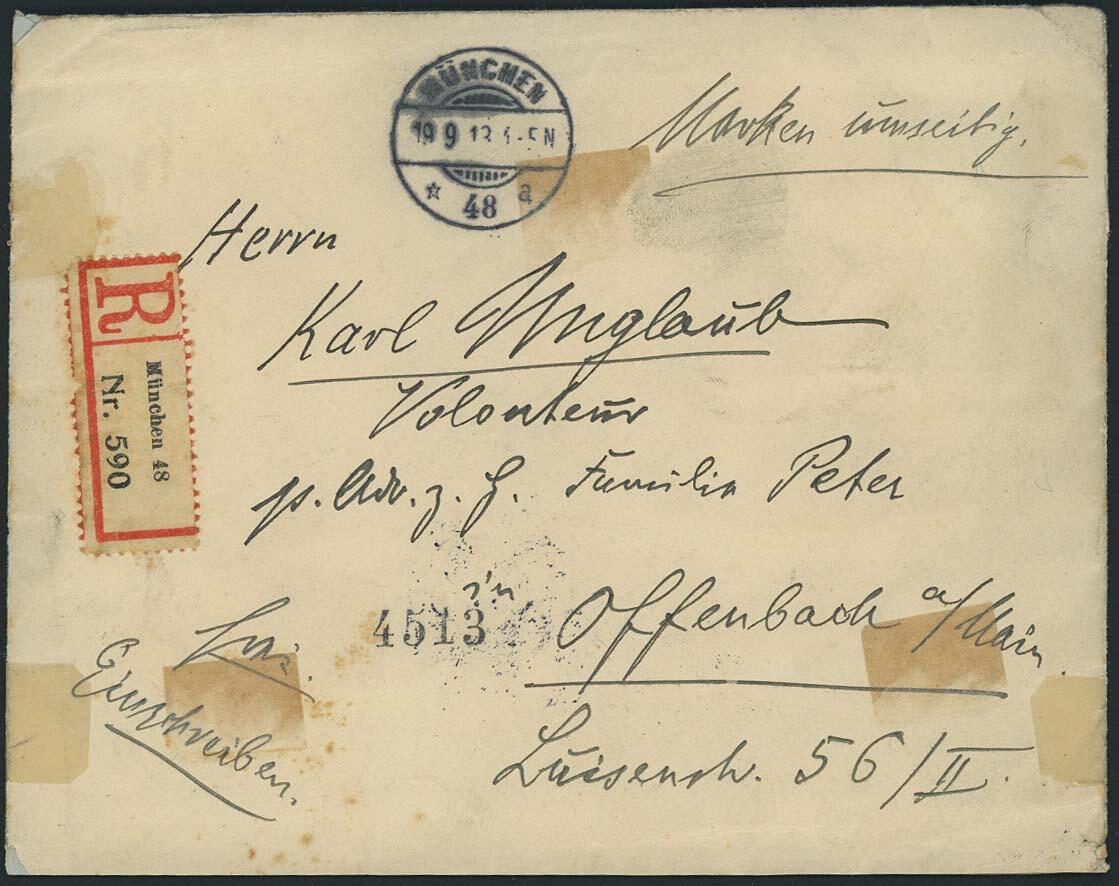 MÜNCHEN
19 9 13 4-5 N
48 a
Marken umseitig.
Herrn
Karl Unglaub
Volonteur
R
München 48
Nr. 590
p. Adr. z. H. Familie Peter
4513
in Offenbach a/Main
Einschreiben.
Luisenstr. 56/II.